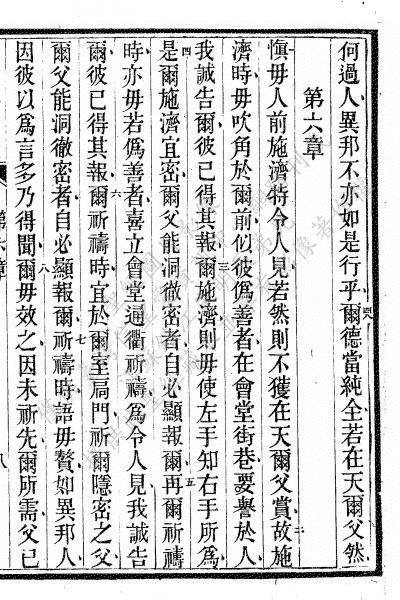 何過人異邦不亦如是行乎爾德當純全若在天爾父然
第六章
一
愼毋人前施濟特令人見若然則不獲在天爾父賞故施
二
濟時毋吹角於爾前似彼僞善者在會堂街巷要譽於人
我誠告爾彼已得其報爾施濟則毋使左手知右手所爲
三
是爾施濟宜密爾父能洞徹密者自必顯報爾再爾祈禱
四
五
時亦毋若僞善者喜立會堂通衢祈禱爲令人見我誠告
爾彼已得其報爾祈禱時宜於爾室扃門祈爾隱密之父
六
爾父能洞徹密者自必顯報爾祈禱時語毋贅如異邦人
七
因彼以爲言多乃得聞爾毋效之因未祈先爾所需父已
八
第六章
八